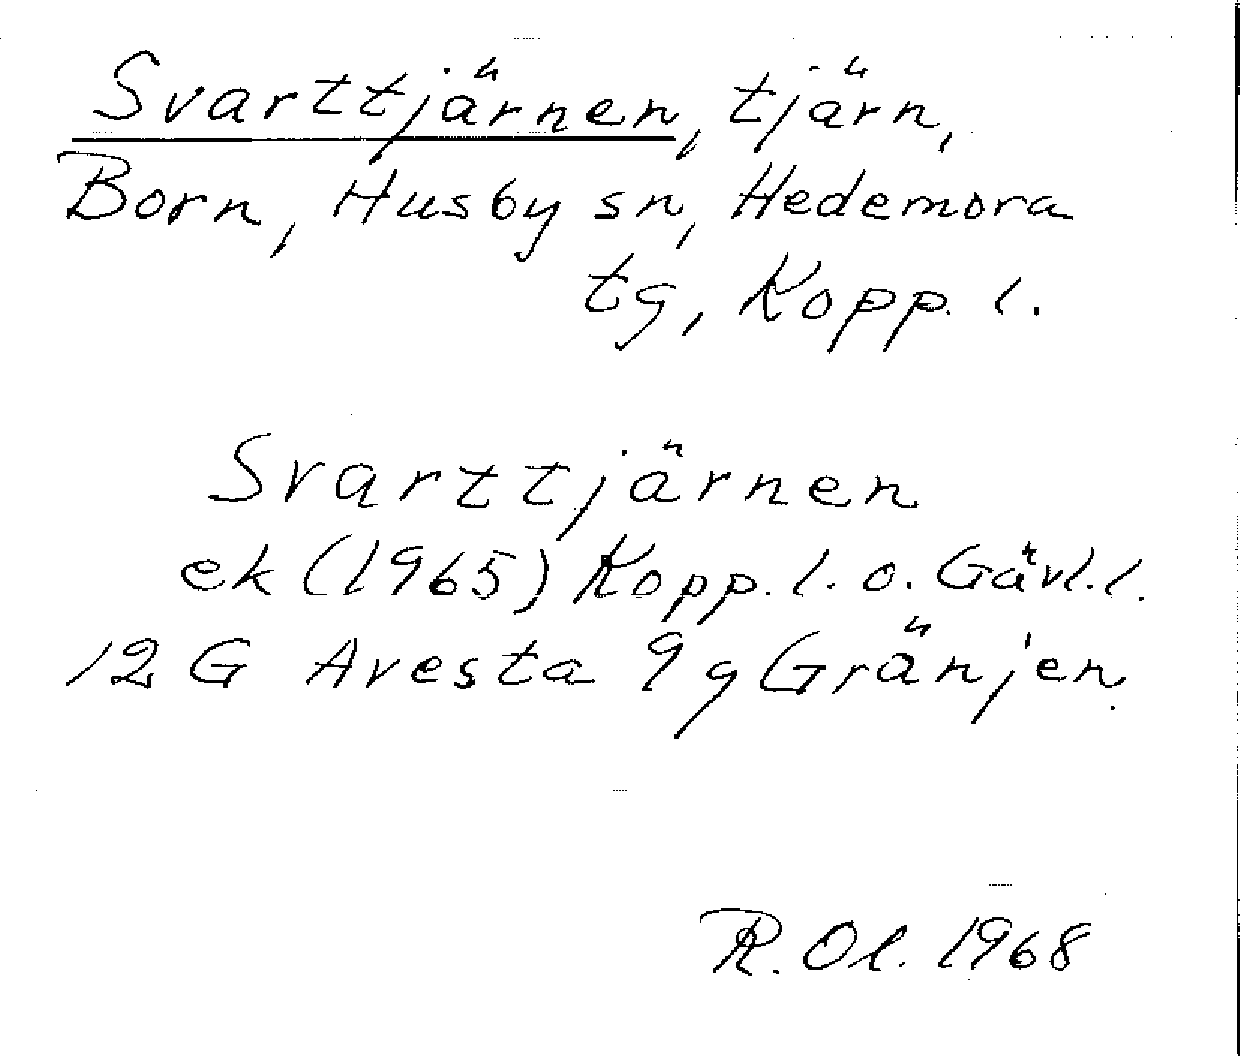 Svarttjärnen, tjärn,
Born, Husby sn, Hedemora
tg, Kopp. l.
Svarttjärnen
ek (1965) Kopp. l. o. Gävl. l.
12 G Avesta 9 g Gränjen
R. Ol. 1968